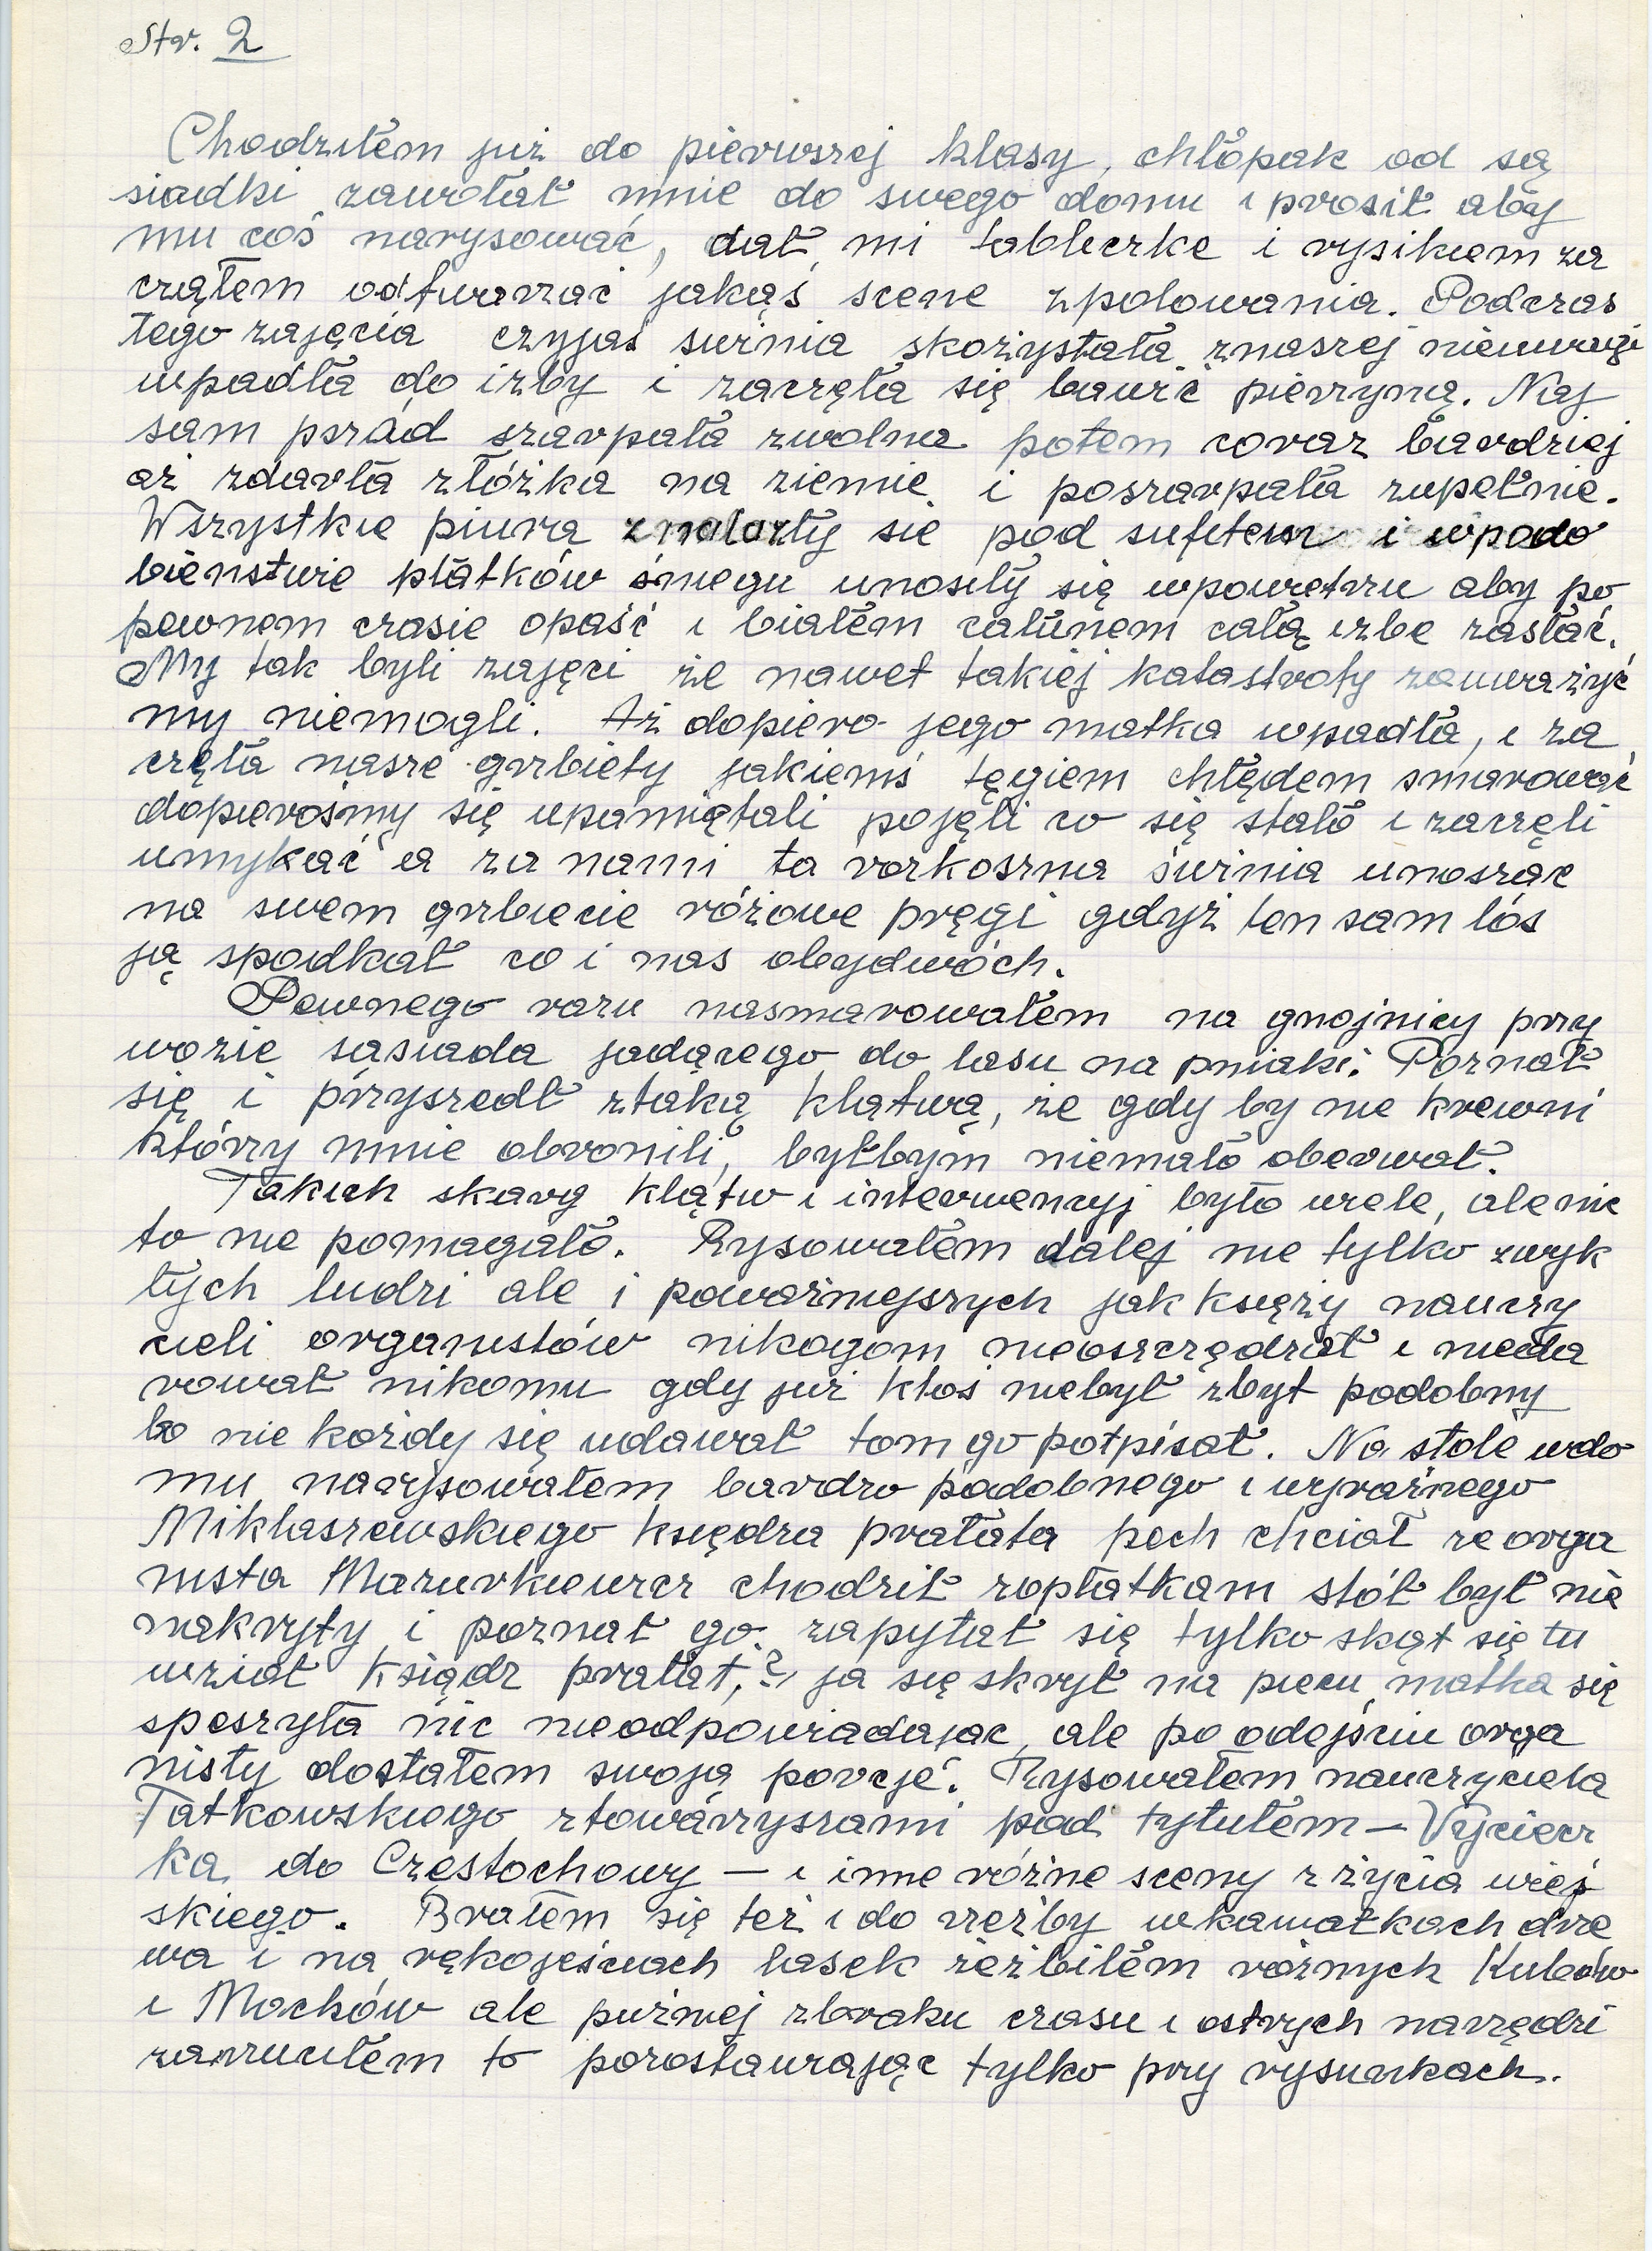 Str. 2
Chodziłem już do pierwszej klasy, chłopak od są
siadki zawołał mnie do swego domu i prosił aby
mu coś narysować, dał mi tabliczkę i rysikiem za
cząłem odtwarzać jakąś scene zpolowania. Podczas
tego zajęcia czyjaś świnia skożystała znaszej nieuwagi
wpadła do izby i zaczęła się bawić pierzyną. Naj
sam pszód szarpała zwolna potem coraz bardziej
aż zdarła złóżka na ziemię i poszarpała zupełnie.
Wszystkie piura znalazły sie pod sufitem i wpodo
bieństwie płatków śniegu unosiły się wpowietrzu aby po
pewnem czasie opaść i białem całunem całą izbe zasłać.
My tak byli zajęci że nawet takiej katastrofy zauważyć
my niemogli. Aż dopiero jego matka wpadła, i za
częła nasze grzbiety jakiemś tęgiem chłędem smarować
dopierośmy się upamiętali pojęli co się stało i zaczęli
umykać a za nami ta rozkoszna świnia unosząc
na swem grzbiecie różowe pręgi gdyż ten sam lós
ją spodkał co i nas obydwóch.
Pewnego razu nasmarowałem na gnojnicy przy
wozie sąsiada jadącego do lasu na pniaki. Poznał
się i przyszedł ztaką klątwą, że gdy by nie krewni
którzy mnie obronili, byłbym niemało oberwał.
Takich skarg klątw i interwencyj było wiele, ale nic
to nie pomagało. Rysowałem dalej nie tylko zwyk
łych ludzi ale i poważniejszych jak księży nauczy
cieli organistów nikogom nieoszczędzał i nieda
rował nikomu gdy już ktoś niebył zbyt podobny
bo nie każdy się udawał tom go potpisał. Na stole wdo
mu narysowałem bardzo podobnego i wyraźnego
Miklaszewskiego księdza prałata pech chciał ze orga
nista Mazurkiewicz chodził zopłatkam stół był nie
nakryty i poznał go. zapytał się tylko skąt się tu
wziął ksiądz prałat,? ja się skrył na piecu, matka się
speszyła nic nieodpowiadając, ale po odejściu orga
nisty dostałem swoją porcje. Rysowałem nauczyciela
Tatkowskiego ztowarzyszami pod tytułem — Wyciecz
ka do Częstochowy — i inne różne sceny z życia wiej
skiego. Brałem się też i do rzeźby wkawałkach drze
wa i na rękojeściach lasek rzeźbiłem różnych Kubów
i Maćków ale puźniej zbraku czasu i ostrych narzędzi
zarzuciłem to pozostawiając tylko przy rysunkach.